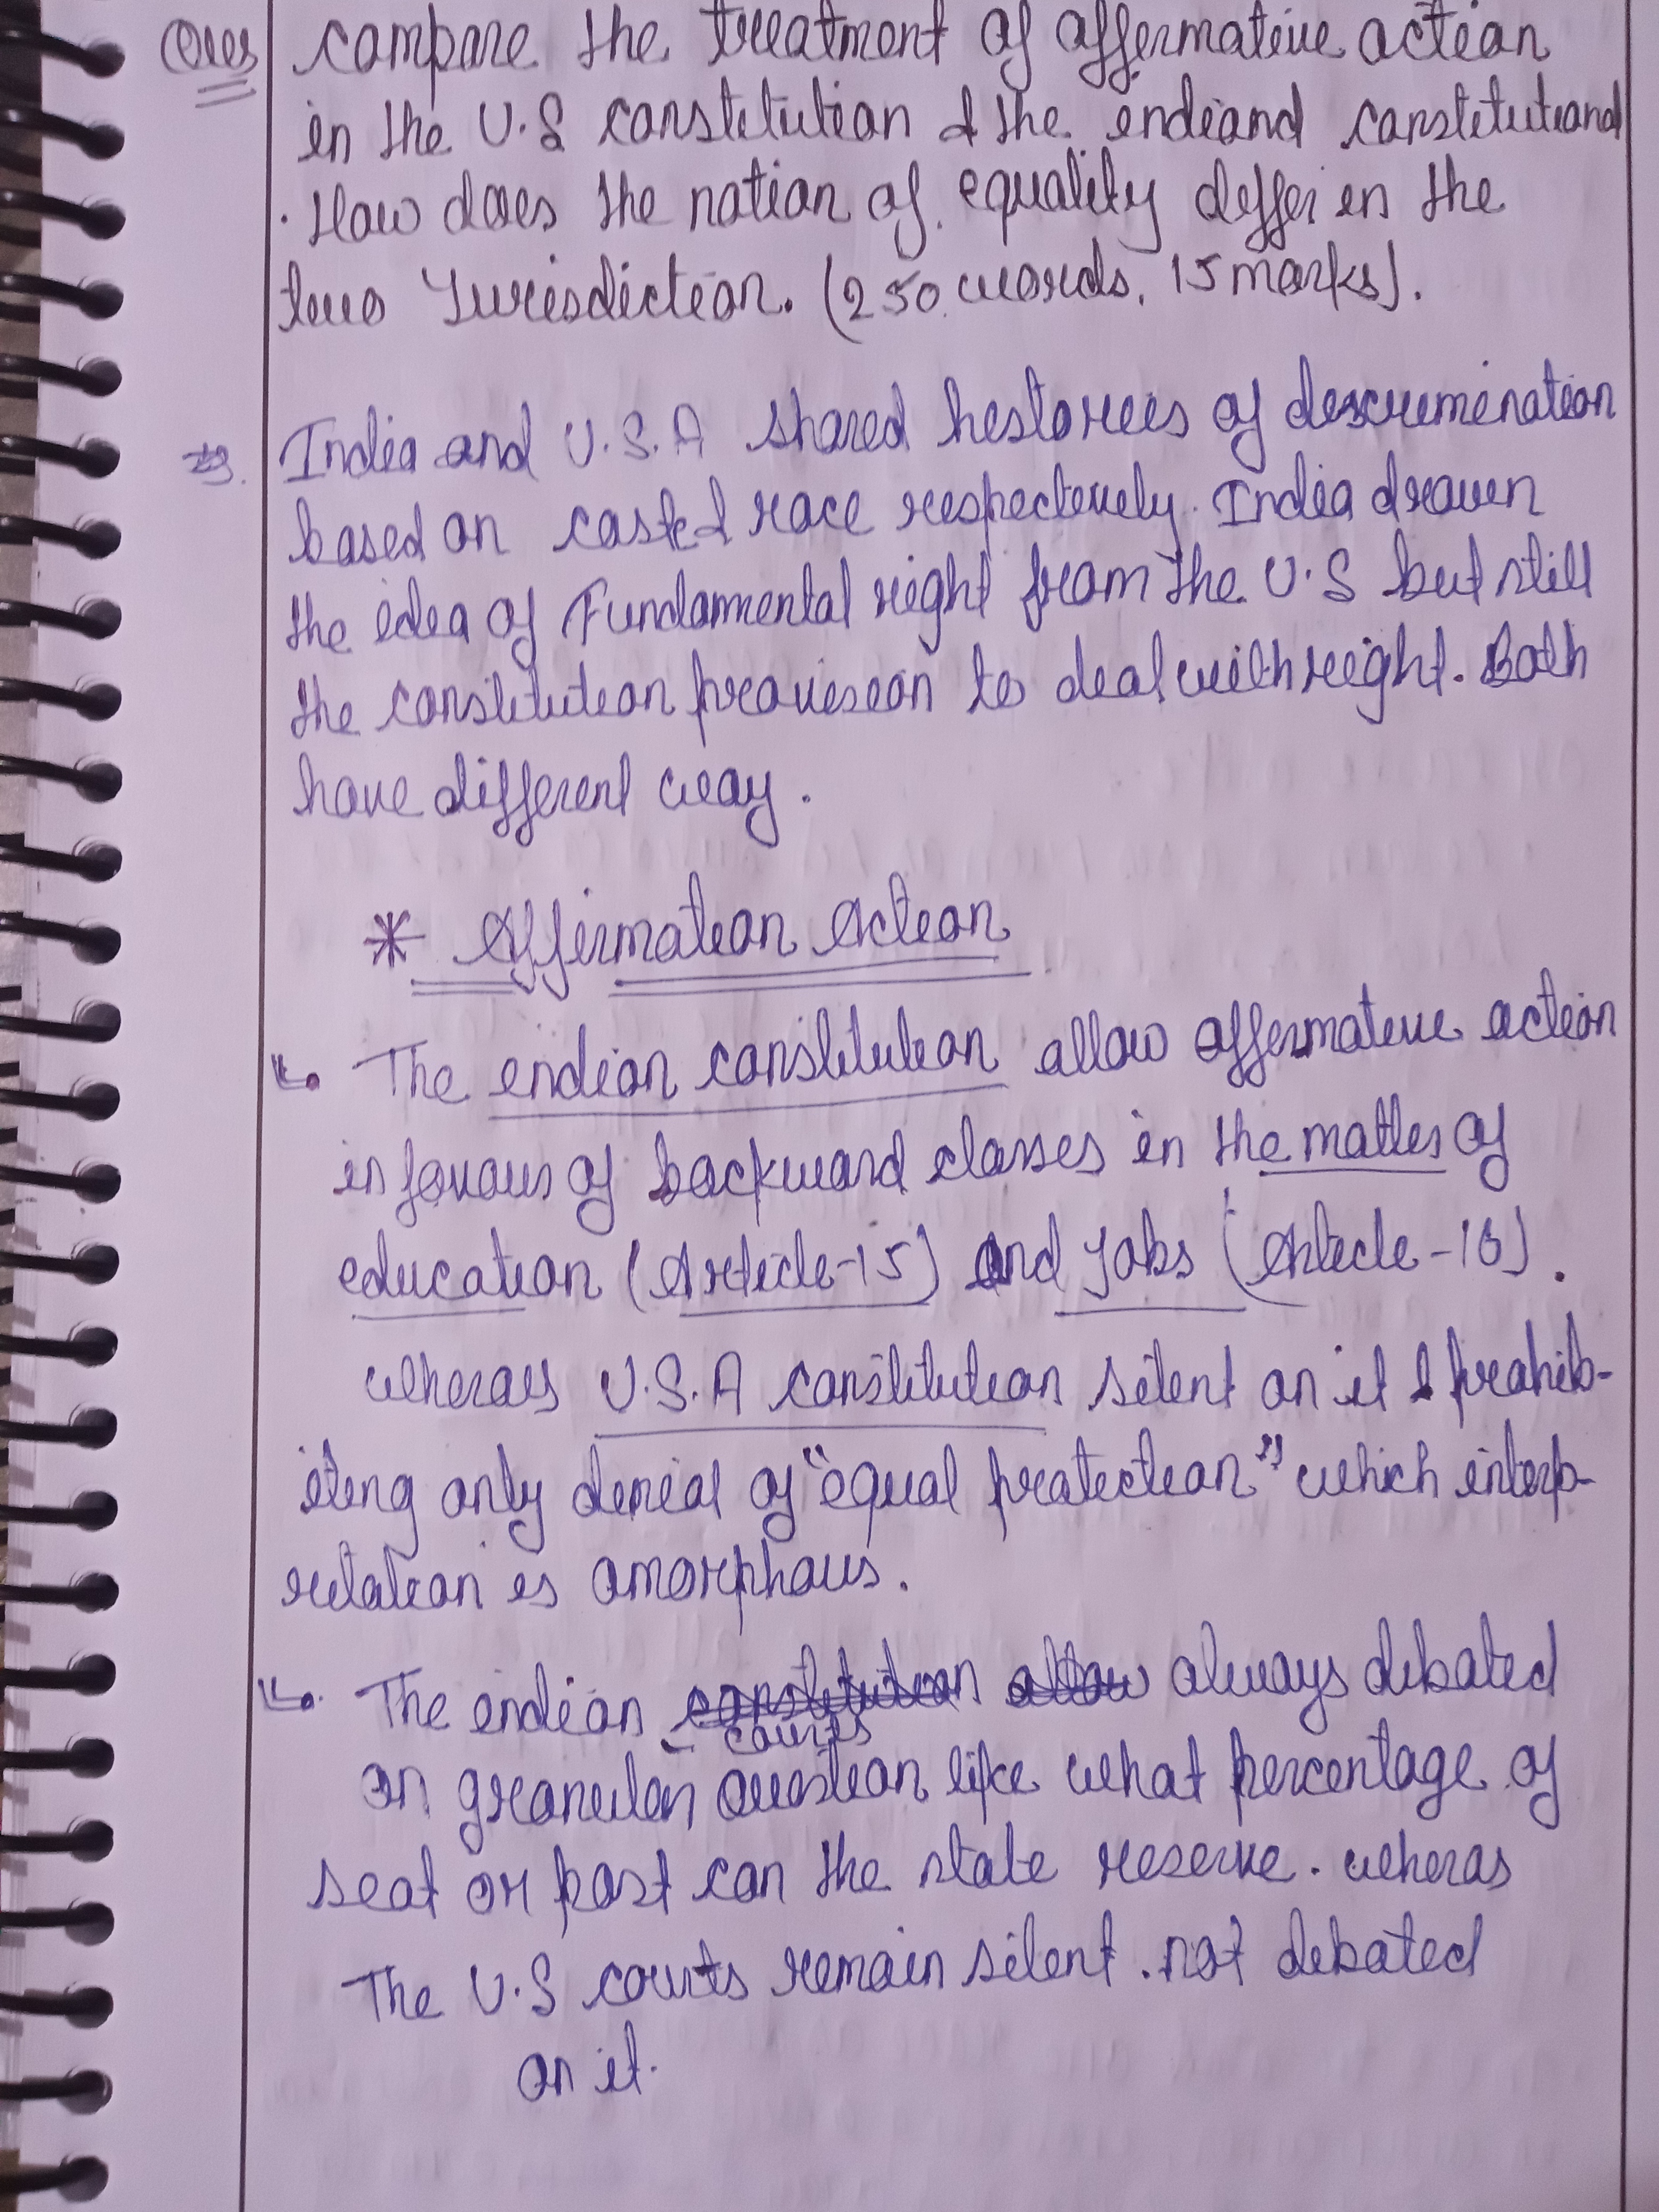 Ques compare the treatment of affermative action
in the U.S constitution & the endiand constitutiond
. How does the notion of equality deffer in the
two Jurisdiction. (250 words, 15 marks).
India and U.S.A shared histories of descremenation
based on caste & race respectevely. India drawn
the idea of Fundamnental right from the U.S but still
the constitution proveseon to deal with reight. Both
have different way.
* Affermateon Action
The endian constitution allow affermateve action
in favour of backward classes in the matter of
education (Article-15) and Jobs (Article-16).
wheraes U.S.A constitution silent on it & prohib-
iteng only denial of "equal protection" which interp-
retation es amorphous.
The endian courts always debated
on granular question like what percentage of
seat or post can the state reserve. wheras
The U.S courts remain silent. not debated
on it.